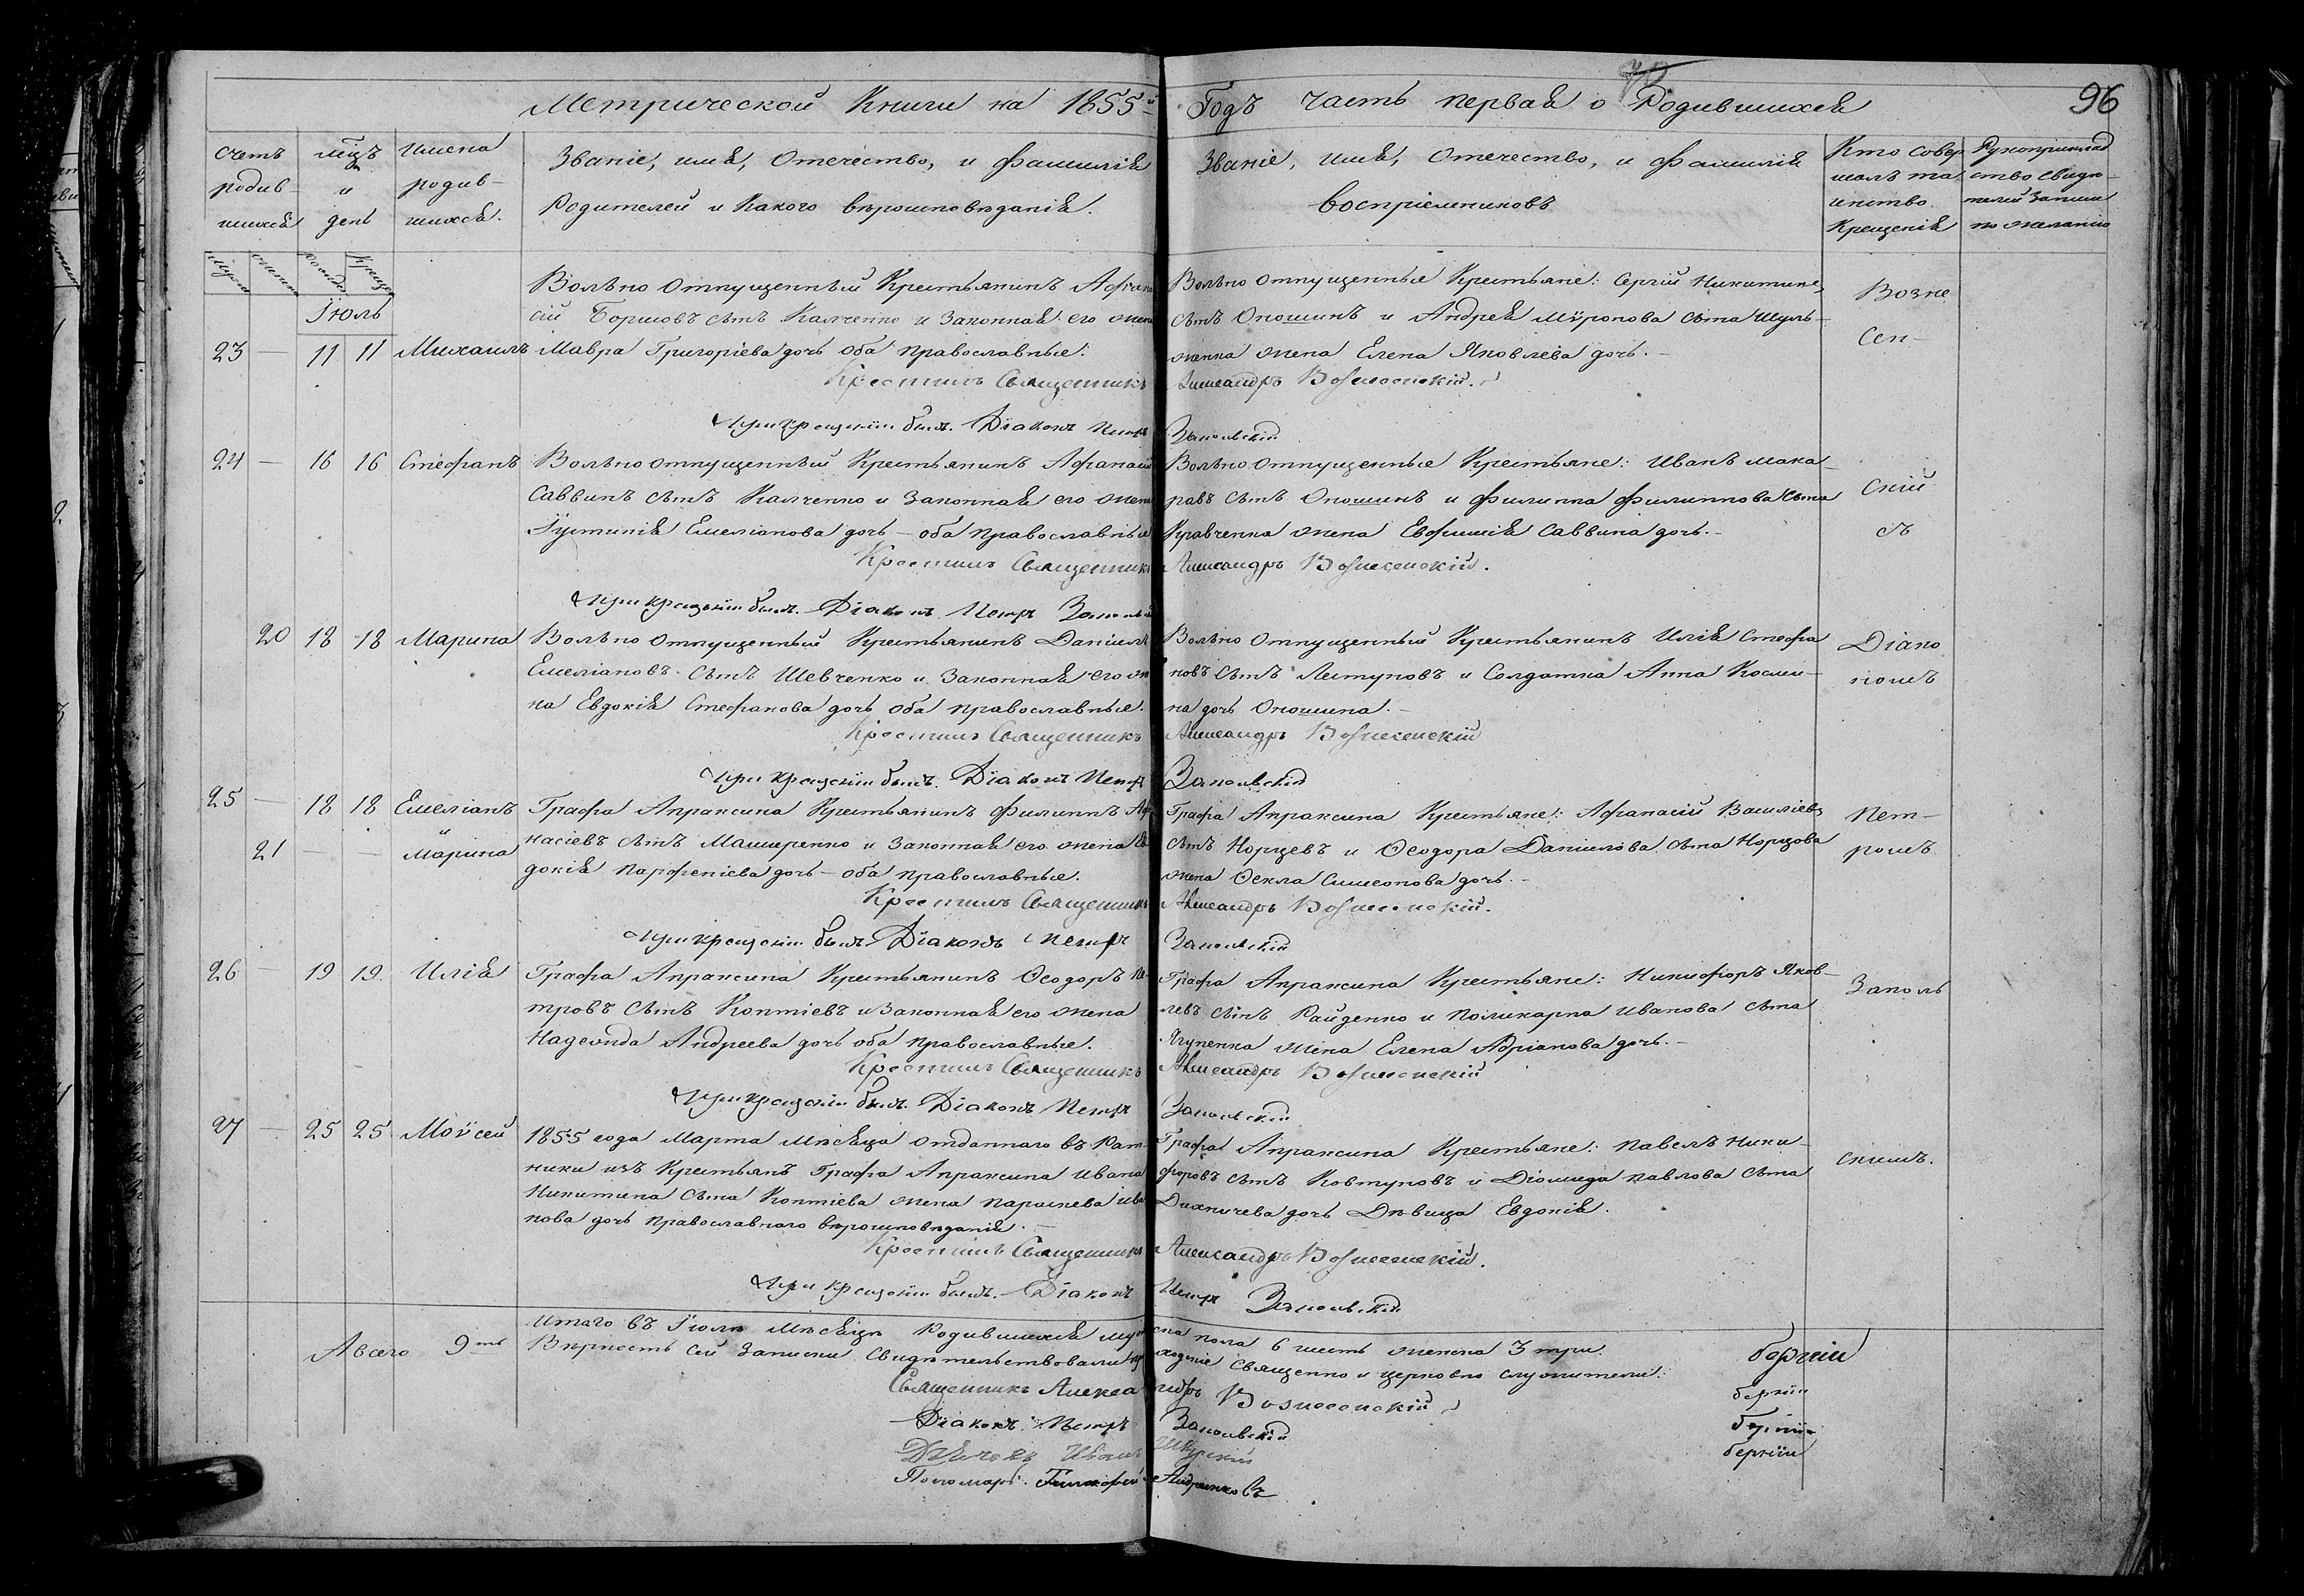 Метрической Книги на 1855й Годъ часть первая о Родившихся
96
Счетъ родившихся
мѣцъ и день
имена родившихся.
Званіе, имя, Отечество, и фамилія Родителей и Какого вѣроисповѣданія.
Званіе, имя, Отечество, и фамилія Воспріемниковъ
Кто совершалъ таинство Крещенія
Рукоприкладство свидѣтелей записи по желанію
Іюль
23 — 11 11 Михаилъ
Вольно отпущенный Крестьянинъ Афана
сій Борисовъ сынъ Калченко и Законная его жена
Мавра Григоріева дочь оба православные.
Вольно отпущенные Крестьяне: Сергій Никитинъ
сынъ Оношинъ и Андрея Мѵронова сына Шуль-
женка жена Елена Яковлева дочь. —
Крестилъ Священникъ Александръ Вознесенскій.
При крещеніи былъ. Діаконъ Петръ Запольскій
24 — 16 16 Стефанъ
Вольно отпущенный Крестьянинъ Афанасій
Саввинъ сынъ Калченко и Законная его жена
Іустинія Емеліанова дочь — оба православные
Вольно отпущенные Крестьяне: Иванъ Мака
ровъ сынъ Оношинъ и Филиппа Филиппова сына
Кравченка жена Евфимія Саввина дочь. —
Крестилъ Священникъ Александръ Вознесенскій.
При крещеніи былъ. Діаконъ Петръ Запольскій
20 18 18 Марина
Вольно отпущенный Крестьянинъ Даніилъ
Емеліановъ сынъ Шевченко и Законная его же
на Евдокія Стефанова дочь оба православные.
Вольно отпущенный Крестьянинъ Илія Стефа
новъ сынъ Летуновъ и Солдатка Анна Косми-
на дочь Оношина. —
Крестилъ Священникъ Александръ Вознесенскій
При крещеніи былъ. Діаконъ Петръ Запольскій
25 — 18 18 Емеліанъ
21 — — и Марина
Графа Апраксина Крестьянинъ Филиппъ Афа
насіевъ сынъ Машеренко и Законная его жена Ев
докія Парфеніева дочь — оба православные.
Графа Апраксина Крестьяне: Афанасій Василіевъ
сынъ Норцевъ и Ѳеодора Даніилова сына Норцова
жена Ѳекла Симеонова дочь. —
Крестилъ Священникъ Александръ Вознесенскій.
При крещеніи былъ Діаконъ Петръ Запольскій
26 — 19 19 Илія
Графа Апраксина Крестьянинъ Ѳеодоръ Пе
тровъ сынъ Коптіевъ и Законная его жена
Надежда Андреева дочь оба православные.
Графа Апраксина Крестьяне: Никифоръ Яков-
левъ сынъ Райденко и Поликарпа Иванова сына
Ягупенка жена Елена Адріанова дочь. —
Крестилъ Священникъ Александръ Вознесенскій
При крещеніи былъ. Діаконъ Петръ Запольскій
27 — 25 25 Моѵсей
1855 года Марта Мѣсяца отданнаго въ Рат-
ники изъ Крестьянъ Графа Апраксина Ивана
Никитина сына Коптіева жена Параскева Ива
нова дочь православнаго вѣроисповѣданія. —
Графа Апраксина Крестьяне: Павелъ Ники-
форовъ сынъ Ковтуновъ и Діомида Павлова сына
дочь Дѣвица Евдокія.
Крестилъ Священникъ Александръ Вознесенскій.
При крещеніи былъ. Діаконъ Петръ Запольскій
Возне
сен-
скій
съ
Діако
номъ
Пет-
ромъ
Заполь
скимъ.
Итаго въ Іюлѣ Мѣсяцѣ Родившихся мужеска пола 6 шесть женска 3 три.
А всего 9ть
Вѣрность сей Записки свидѣтельствовали Священно и церковно служители:
Священникъ Александръ Вознесенскій
Діаконъ Петръ Запольскій
Дьячокъ Иванъ
Пономарь